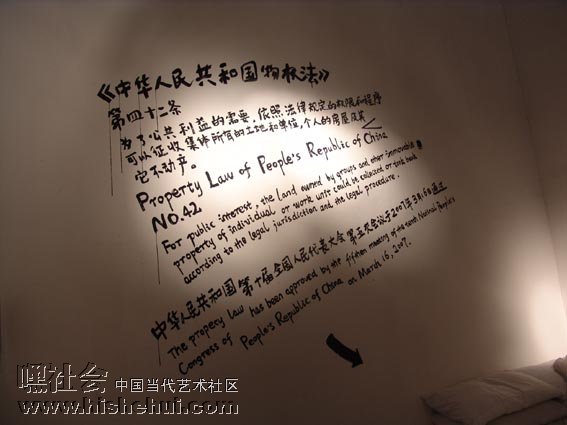 《中华人民共和国物权法》
第四十二条
为了公共利益的需要，依照法律规定的权限和程序
可以征收集体所有的土地和单位，个人的房屋及其
它不动产。
Property Law of People's Republic of China
NO.42
For public interest, the land owned by groups and other immovable
property of individual or work unit could be collected or took back
according to the legal jurisdiction and the legal procedure.
中华人民共和国第十届全国人民代表大会第五次会议于2007年3月16日通过
The propery law has been approved by the fifteen meeting of the tenth National People's
Congress of People's Republic of China on March 16, 2007.
嘿社会 中国当代艺术社区
www.hishehui.com